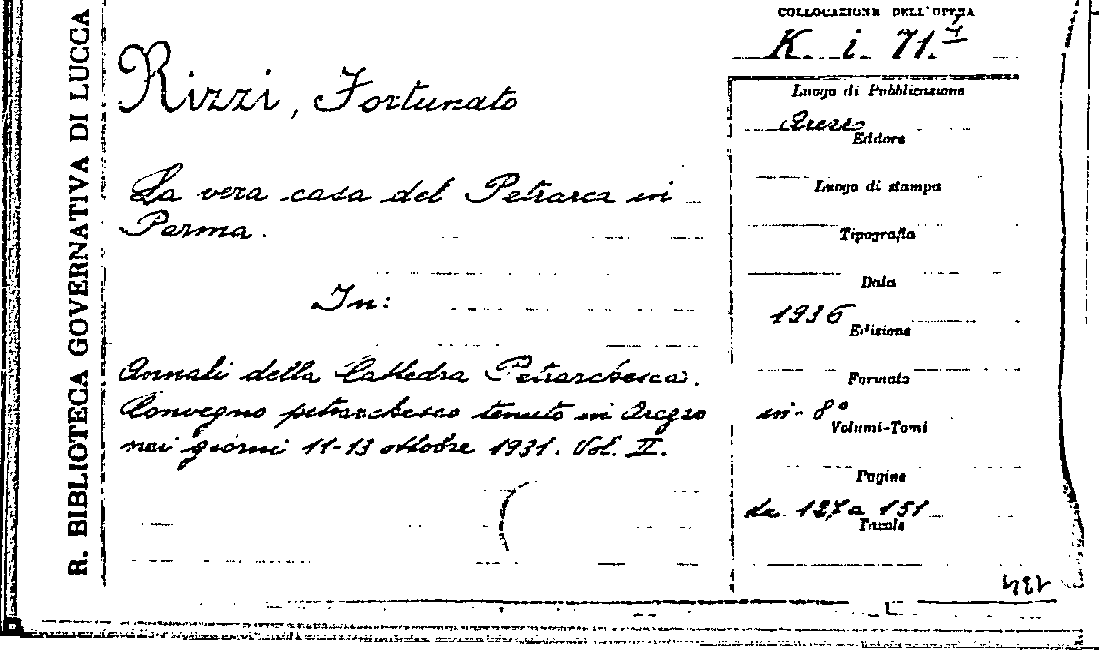 R. BIBLIOTECA GOVERNATIVA DI LUCCA
COLLOCAZIONE DELL'OPERA
K. i. 71.
Rizzi, Fortunato
La vera casa del Petrarca in
Parma.
In:
Annali della Cattedra Petrarchesca.
Convegno petrarchesco tenuto in Arezzo
nei giorni 11-13 ottobre 1931. Vol. II.
Luogo di Pubblicazione
Editore
Luogo di stampa
Tipografia
Data
1936
Edizione
Formato
in-8°
Volumi-Tomi
Pagine
da 127 a 151
Tavole